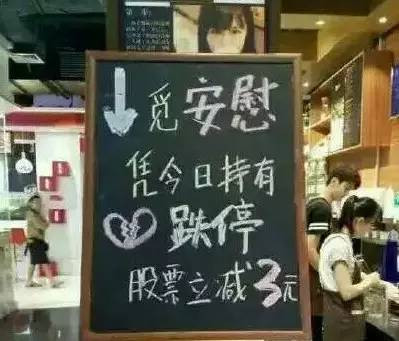 觅安慰
凭今日持有
跌停
股票立减3元